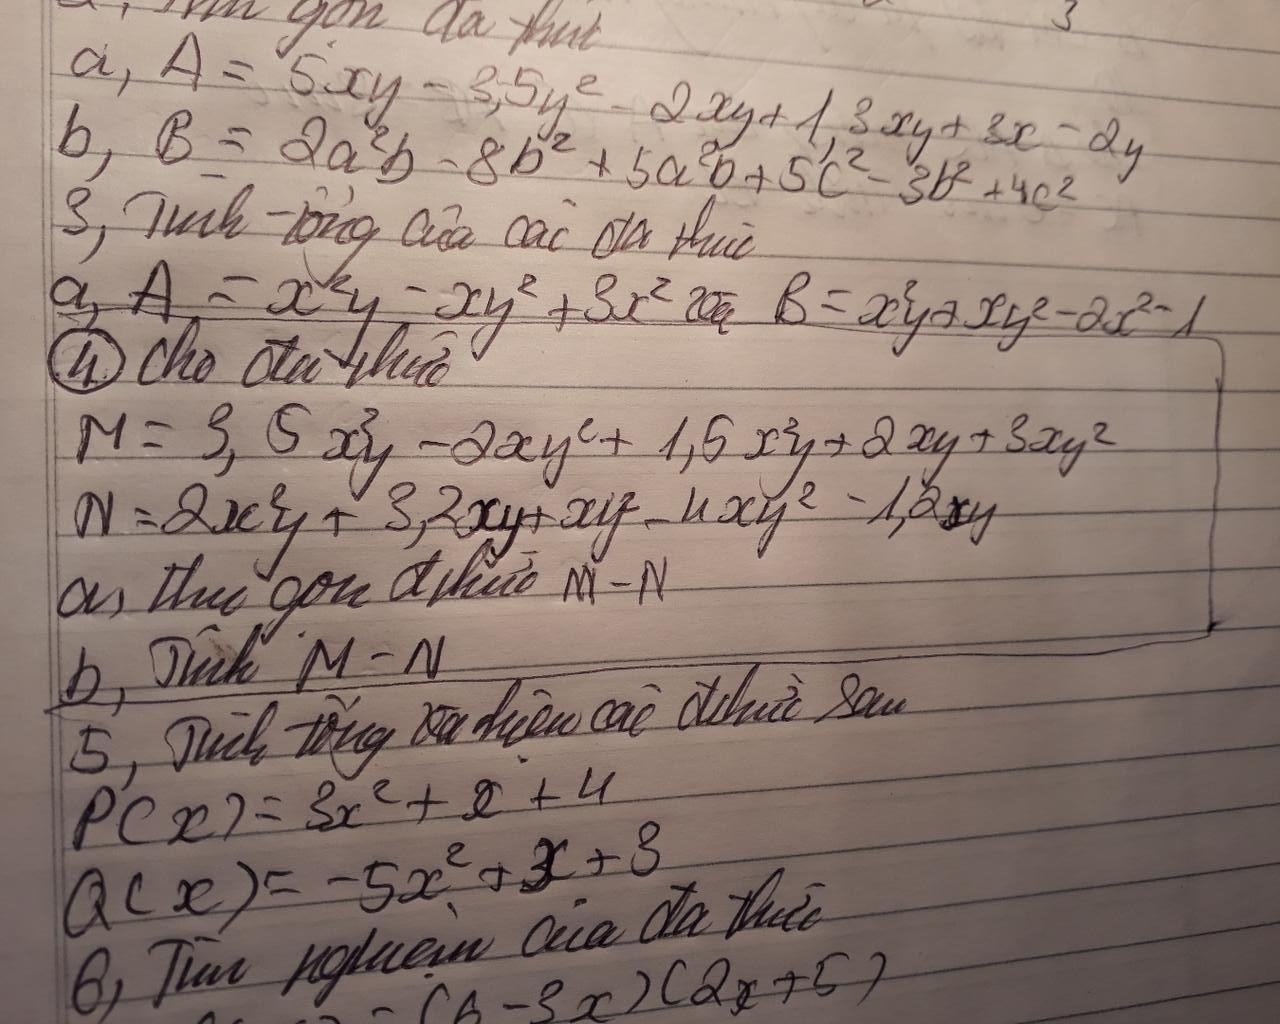 gọn đa thức
3
a, A = 5xy - 3,5y² - 2xy + 1,3xy + 3x - 2y
b, B = 2a²b - 8b² + 5a²b + 5c² - 3b² + 4c²
3, Tính tổng của các đa thức
a, A = x²y - xy² + 3x² và B = x²y + xy² - 2x² - 1
4 Cho đa thức
M = 3,5x²y - 2xy² + 1,5x²y + 2xy + 3xy²
N = 2x²y + 3,2xy + xy² - 4xy² - 1,2xy
a, thu gọn đthức M - N
b, Tính M - N
5, Tính tổng và hiệu các đthức sau
P(x) = 3x² + x + 4
Q(x) = -5x² + x + 3
6, Tìm nghiệm của đa thức
= (6 - 3x)(2x + 5)